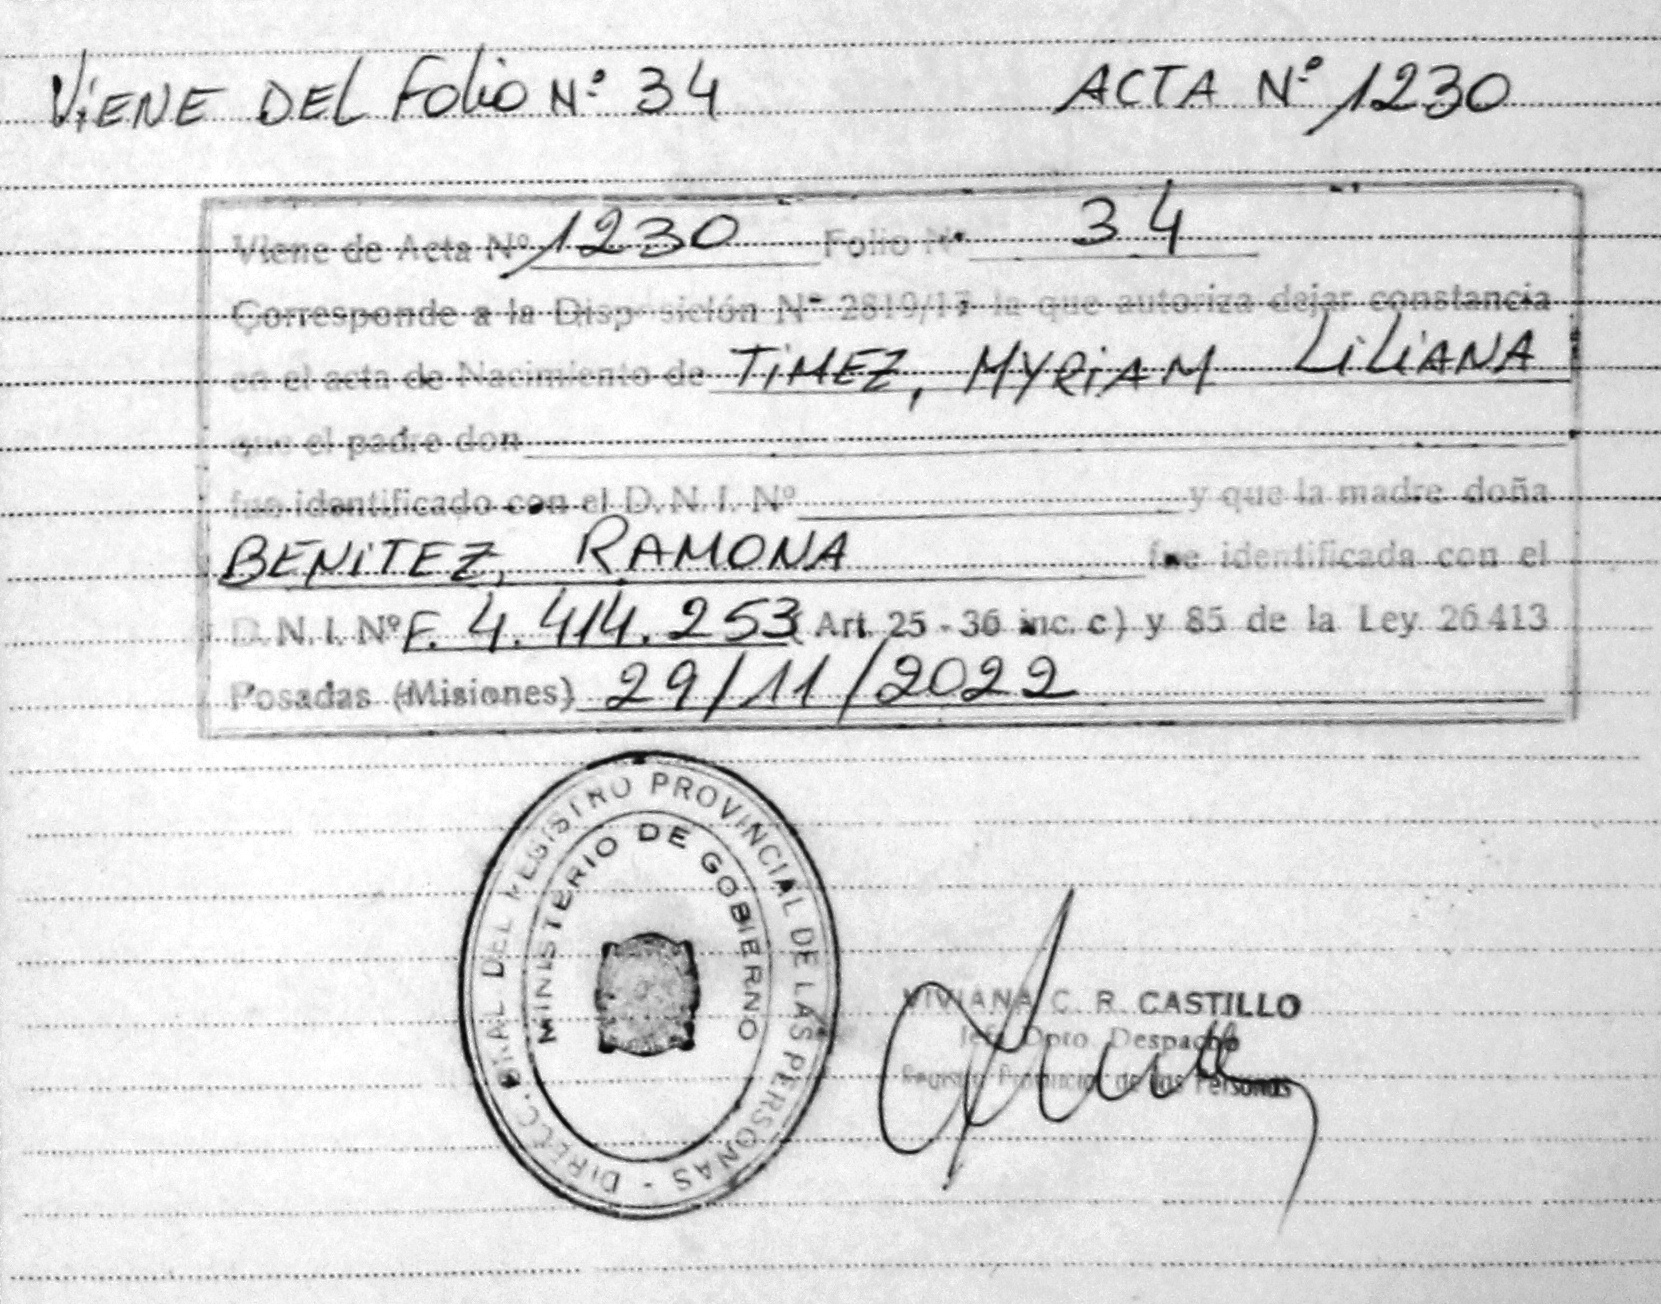 ViENE DEL Folio Nº 34 ACTA Nº 1230
Viene de Acta Nº 1230 Folio Nº 34
Corresponde a la Disposición Nº 2819/17 la que autoriza dejar constancia
en el acta de Nacimiento de TiMEZ, MYRiAM LiLiANA
que el padre don
fue identificado con el D. N. I. Nº y que la madre doña
BENiTEZ, RAMONA fue identificada con el
D. N. I. Nº F. 4.414.253 (Art. 25 - 36 inc. c) y 85 de la Ley 26413
Posadas (Misiones) 29/11/2022
DIRECC. GRAL DEL REGISTRO PROVINCIAL DE LAS PERSONAS -
MINISTERIO DE GOBIERNO
VIVIANA C. R. CASTILLO
Jefe Dpto Despacho
Registro Provincial de las Personas